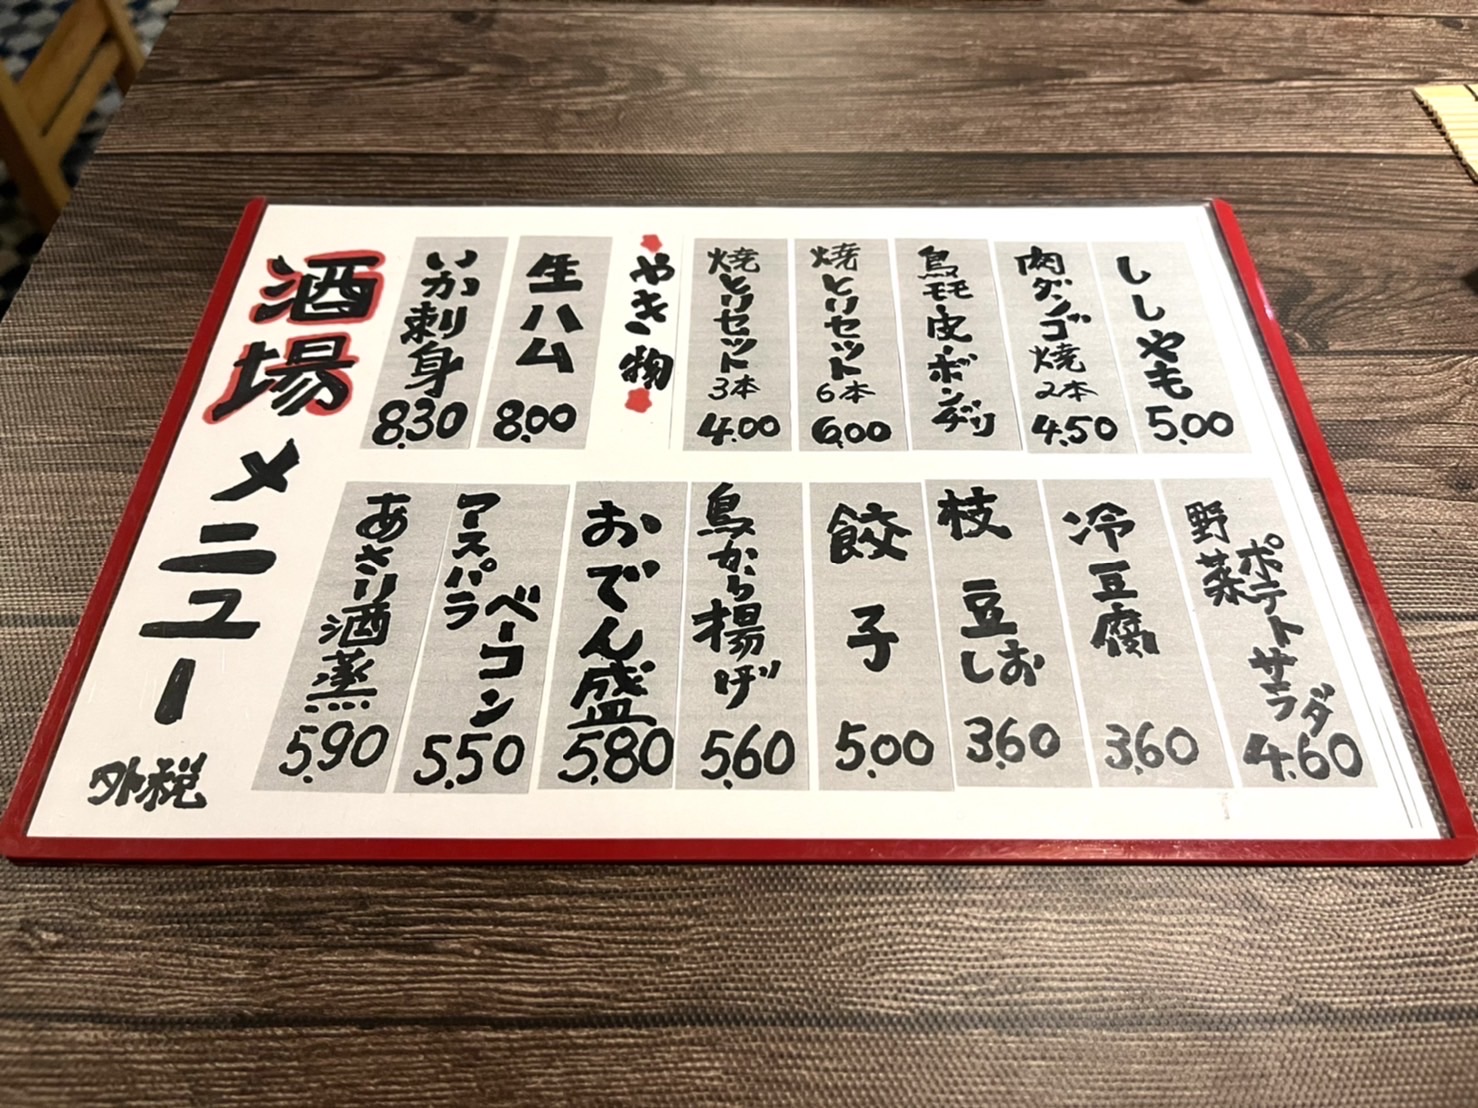 酒場メニュー
外税
いか刺身
8.30
生ハム
8.00
やき物
焼とりセット
3本
4.00
焼とりセット
6本
6.00
鳥モモ・皮・ボンヂリ
肉ダンゴ焼
2本
4.50
ししゃも
5.00
あさり酒蒸
5.90
アスパラ
ベーコン
5.50
おでん盛
5.80
鳥から揚げ
5.60
餃子
5.00
枝豆
しお
3.60
冷豆腐
3.60
野菜
ポテトサラダ
4.60